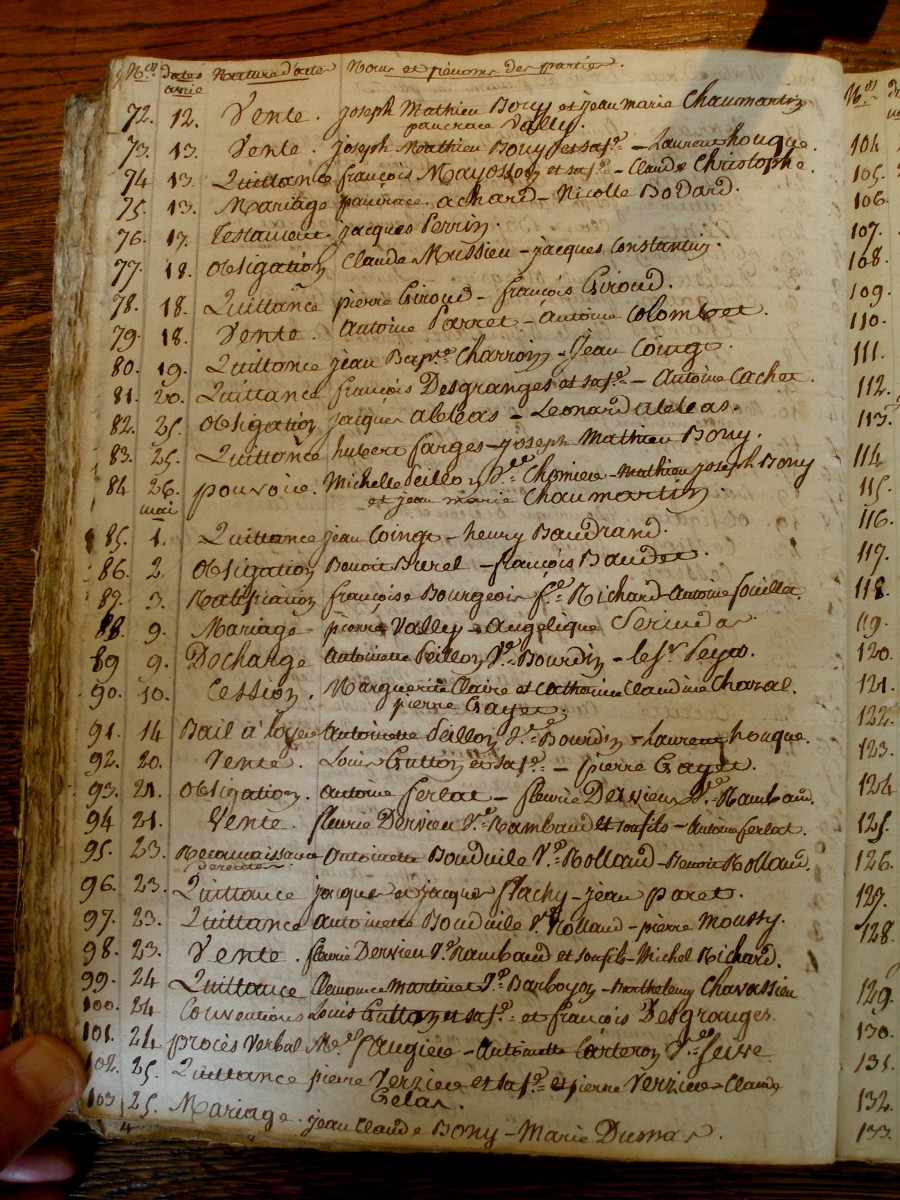 N.os dates Nature d'acte Noms et prénoms des parties.
72. 12. Vente. joseph Mathieu Bony et jean marie Chaumartin
pancrace Vally.
73. 13. Vente. joseph Mathieu Bony et sa fe. - Laurent houque.
74 13. Quittance françois Mayosson et sa fe. - Claude Christophe.
75. 13. Mariage pancrace achard - Nicolle Bodard.
76. 17. Testament. jacques Perrin.
77. 18. obligation Claude Mussieu - jacques Constantin.
78. 18. Quittance pierre Giroud - françois Giroud.
79. 18. Vente. Antoine Parret - Antoine Colombet.
80. 19. Quittance jean Bapte. Charroin - Jean Coingt.
81. 20. Quittance françois Desgranges et sa fe. - Antoine Cachet.
82. 25. obligation jacques ableas - Leonard ableas.
83. 25. Quittance hubert farges - joseph Mathieu Bony.
84 26. pouvoir. Michelle Peillon Ve. - Mathieu joseph Bony
et jean marie Chaumartin.
mai
85. 1. Quittance jean Coingt - henry Baudrand.
86. 2. obligation Benoit Burel - françois Baudet.
87. 3. Ratification françoise Bourgeois fe. Richard - Antoine souillet.
88. 9. Mariage - pierre Valley - Angélique
89 9. Decharge Antoinette Peillon Ve. Bourdin - le sr. Peyro.
90. 10. Cession. Marguerite Claire et Catherine Claudine Chazal.
pierre Gayet.
91. 14 Bail à loyer Antoinette Peillon Ve. Bourdin - Laurent houque.
92. 20. Vente. Louis Gutton et sa fe. - pierre Gayet.
93. 21. obligation. antoine ferlat - fleurie Dervieux Ve. Rambaud.
94 21. Vente. fleurie Dervieu Ve. Rambaud et son fils - Antoine ferlat.
95. 23. Reconnaissance Antoinette Bouduile Ve. Rolland - Benoit Rolland.
96. 23. Quittance jacques et jacques flachy - jean paret.
97. 23. Quittance Antoinette Bouduile Ve. Rolland - pierre Moussy.
98. 23. Vente. fleurie Dervieu Ve. Rambaud et son fils - Michel Richard.
99. 24 Quittance Clemence Martinet Ve. Barboyon - Barthelemy Chavassieu
100. 24 Conventions Louis Gutton et sa fe. et françois Desgranges.
101. 24 procès Verbal Me. faugiere - Antoinette Carteron Ve. seive
102. 25. Quittance pierre Verziere et sa fe. et pierre Verziere - Claude
Gelas.
103 25. Mariage. jean Claude Bony - Marie Dumas.
N.os
104
105.
106.
107.
108.
109.
110.
111.
112.
113.
114
115.
116.
117.
118.
119.
120.
121.
122.
123.
124
125.
126.
127.
128.
129.
130.
131.
132.
133.